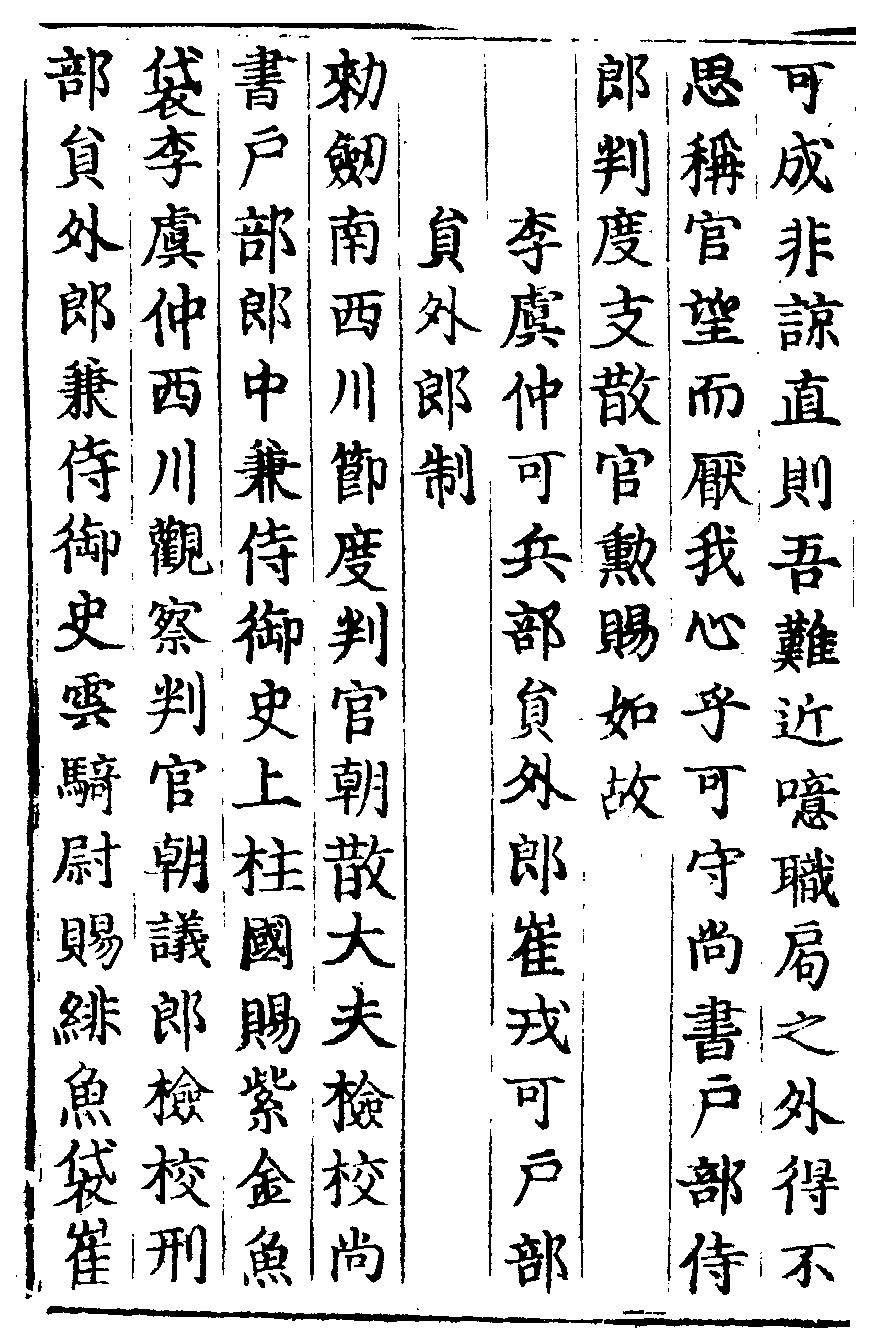 可成非諒直則吾難近噫職局之外得不
思稱官望而厭我心乎可守尚書戶部侍
郎判度支散官勲賜如故
李虞仲可兵部貟外郎崔戎可戶部
貟外郎制
勑劒南西川節度判官朝散大夫檢校尚
書戶部郎中兼侍御史上柱國賜紫金魚
袋李虞仲西川觀察判官朝議郎檢校刑
部貟外郎兼侍御史雲騎尉賜緋魚袋崔